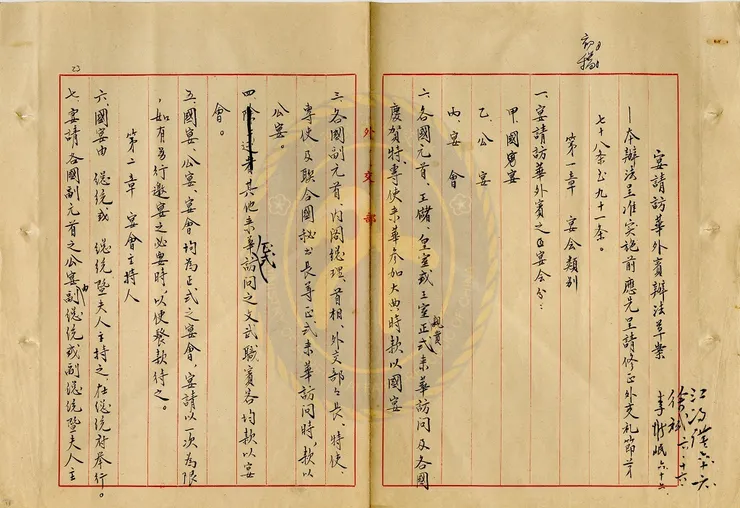 初稿
宴請訪華外賓辦法草案
—本辦法呈准實施前應先呈請修正外交禮節第
七十八條至九十一條。
第一章 宴會類別
一、宴請訪華外賓之宴會分:
甲、國宴
乙、公宴
丙、宴會
二、各國元首、王儲、皇室或王室正式親貴來華訪問及各國
慶賀特專使來華參加大典時款以國宴
外交部
三、各國副元首、內閣總理、首相、外交部部長、特使、
專使及聯合國秘書長等正式來華訪問時,款以
公宴。
四、其他來華正式訪問之文武職賓各均款以宴
會。
五、國宴、公宴、宴會均為正式之宴會,宴請以一次為限
,如有另行邀宴之必要時,以便餐款待之。
第二章 宴會主持人
六、國宴由 總統或 總統暨夫人主持之,在總統府舉行。
七、宴請各國副元首之公宴由副總統或副總統暨夫人主
23